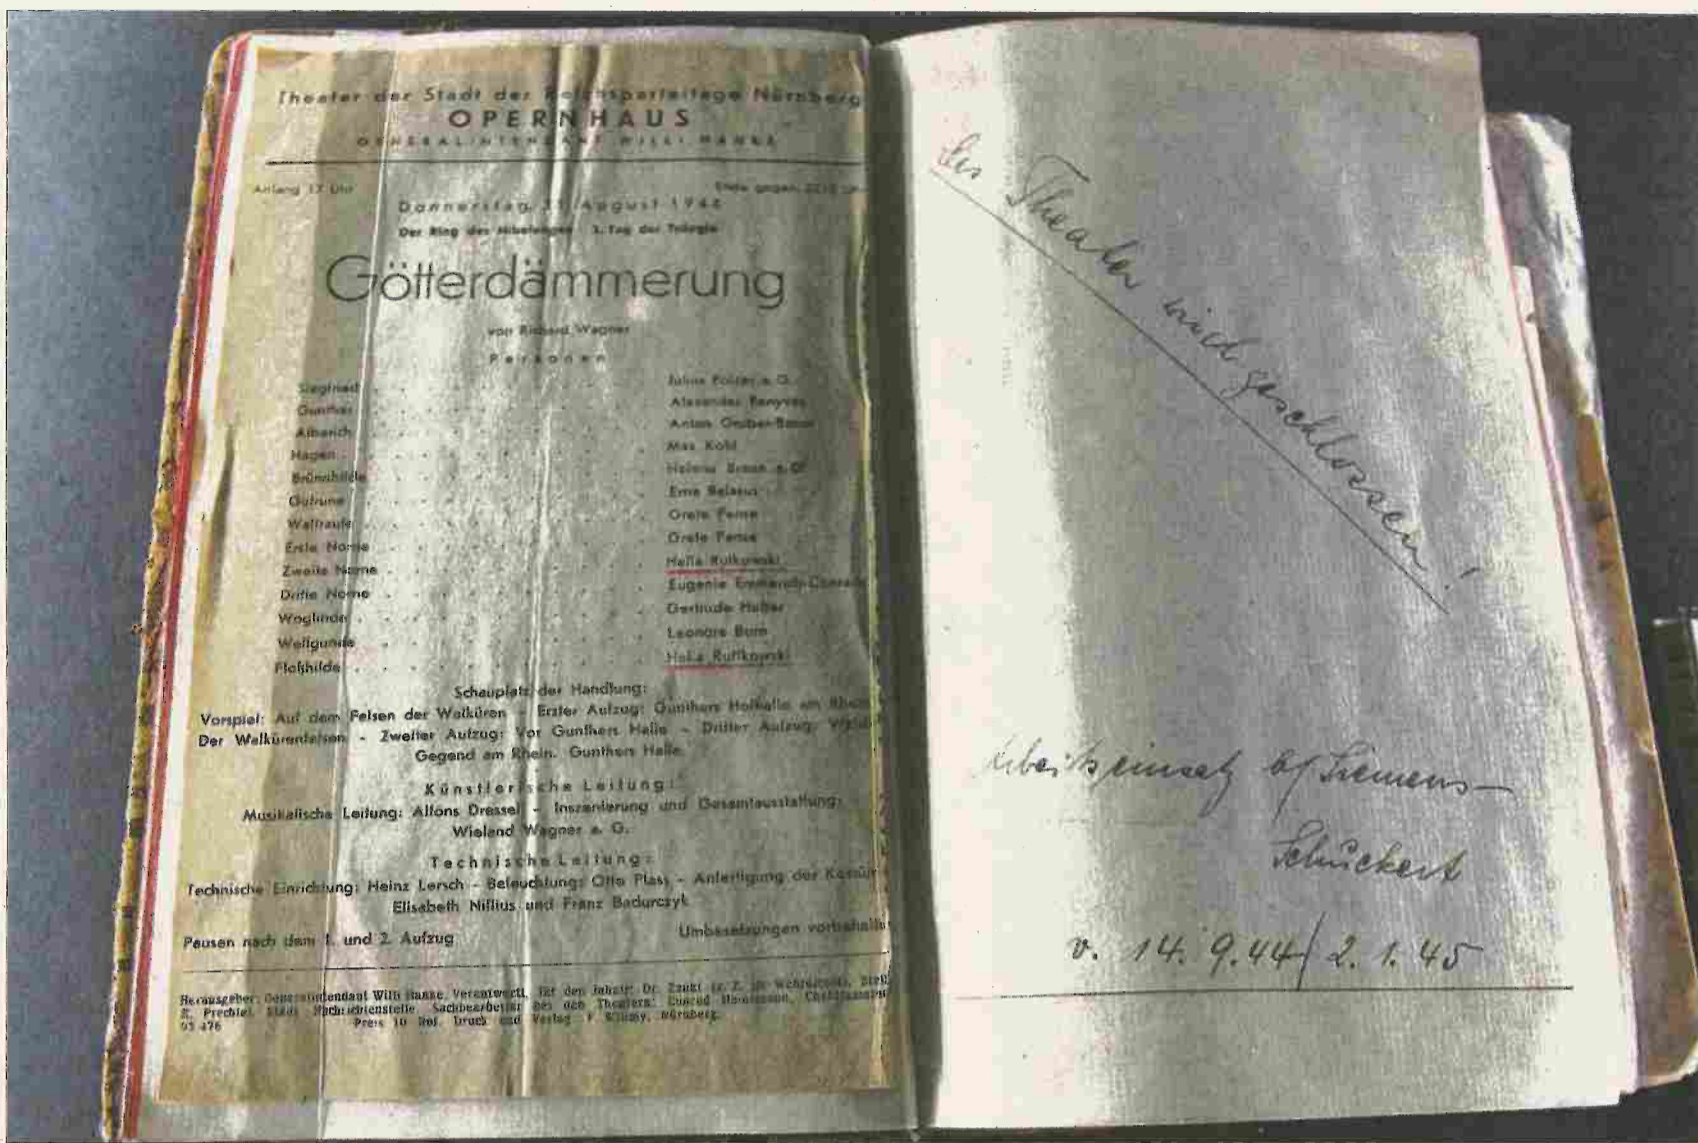 Theater der Stadt der Reichsparteitage Nürnberg
OPERNHAUS
GENERALINTENDANT WILLI HANKE
Anfang 17 Uhr
Ende gegen
Donnerstag, 31. August 1944
Der Ring des Nibelungen 3. Tag der Trilogie
Götterdämmerung
von Richard Wagner
Personen
Siegfried Julius Pölzer a. G.
Gunther Alexander Fenyves
Alberich Anton Gruber-Bauer
Hagen Max Kohl
Brünnhilde Helena Braun a. G.
Gutrune Erna
Waltraute Grete Pense
Erste Norne Grete Pense
Zweite Norne Hella Rutkowski
Dritte Norne Eugenie
Woglinde Gertrude Huber
Wellgunde Leonore
Floßhilde Hella Ruttkowski
Schauplatz der Handlung:
Vorspiel: Auf dem Felsen der Walküren - Erster Aufzug: Gunthers Hofhalle am Rhein
Der Walkürenfelsen - Zweiter Aufzug: Vor Gunthers Halle - Dritter Aufzug:
Gegend am Rhein. Gunthers Halle.
Künstlerische Leitung:
Musikalische Leitung: Alfons Dressel - Inszenierung und Gesamtausstattung:
Wieland Wagner a. G.
Technische Leitung:
Technische Einrichtung: Heinz Lersch - Beleuchtung: Otto Plass - Anfertigung der Kostüm
Elisabeth Nillius und Franz Badurczyk
Pausen nach dem 1. und 2. Aufzug
Umbesetzungen vorbehalten
Herausgeber: Generalintendant Willi Hanke. Verantwortl. für den Inhalt: Dr. (z. Z. im Wehrdienst),
Prechtel, Städt. Nachrichtenstelle. Sachbearbeiter bei den Theatern: Konrad
Preis 10 Rpf. Druck und Verlag Nürnberg.
Das Theater wird geschlossen!
Arbeitseinsatz b/ Siemens-
Schuckert
v. 14. 9. 44 / 2. 1. 45